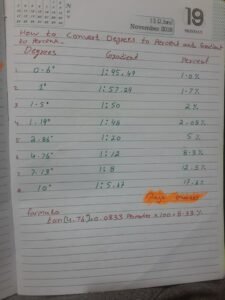 November 2018
19
How to Convert Degrees to Percent and Gradient
to Percent.
Degrees Gradient Percent
1. 0.6° 1:95.49 1.0%
2. 1° 1:57.29 1.7%
3. 1.5° 1:50 2%
4. 1.19° 1:48 2.08%
5. 2.86° 1:20 5%
6. 4.76° 1:12 8.3%
7. 7.13° 1:8 12.5%
8. 10° 1:5.67 17.6%
formula
tan(4.76)=0.0833 × 100 = 8.33%